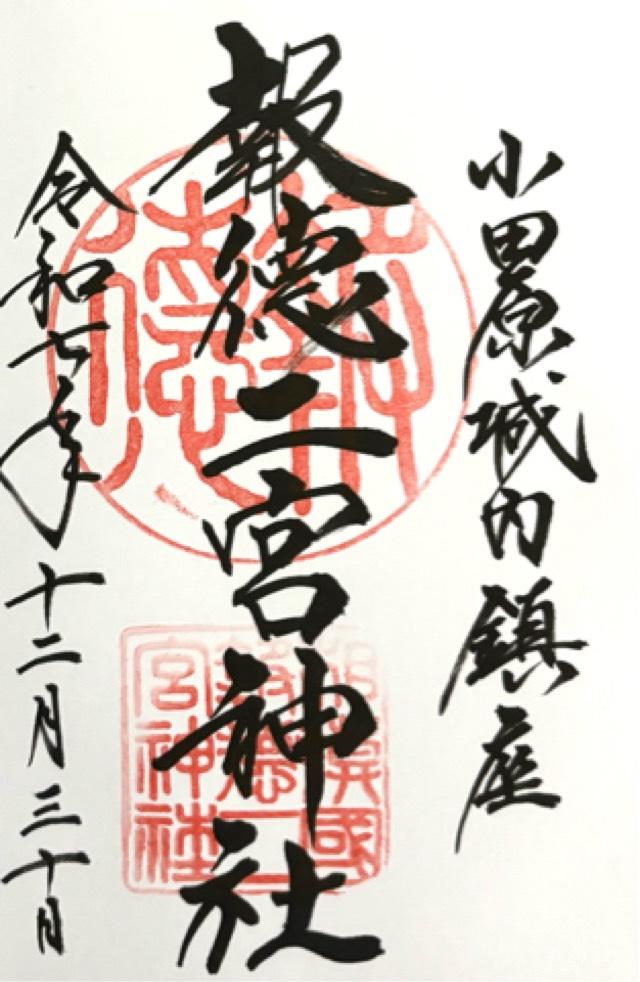 小田原城内鎮座
報徳二宮神社
報徳
相模國
報徳二
宮神社
令和七年十二月三十日